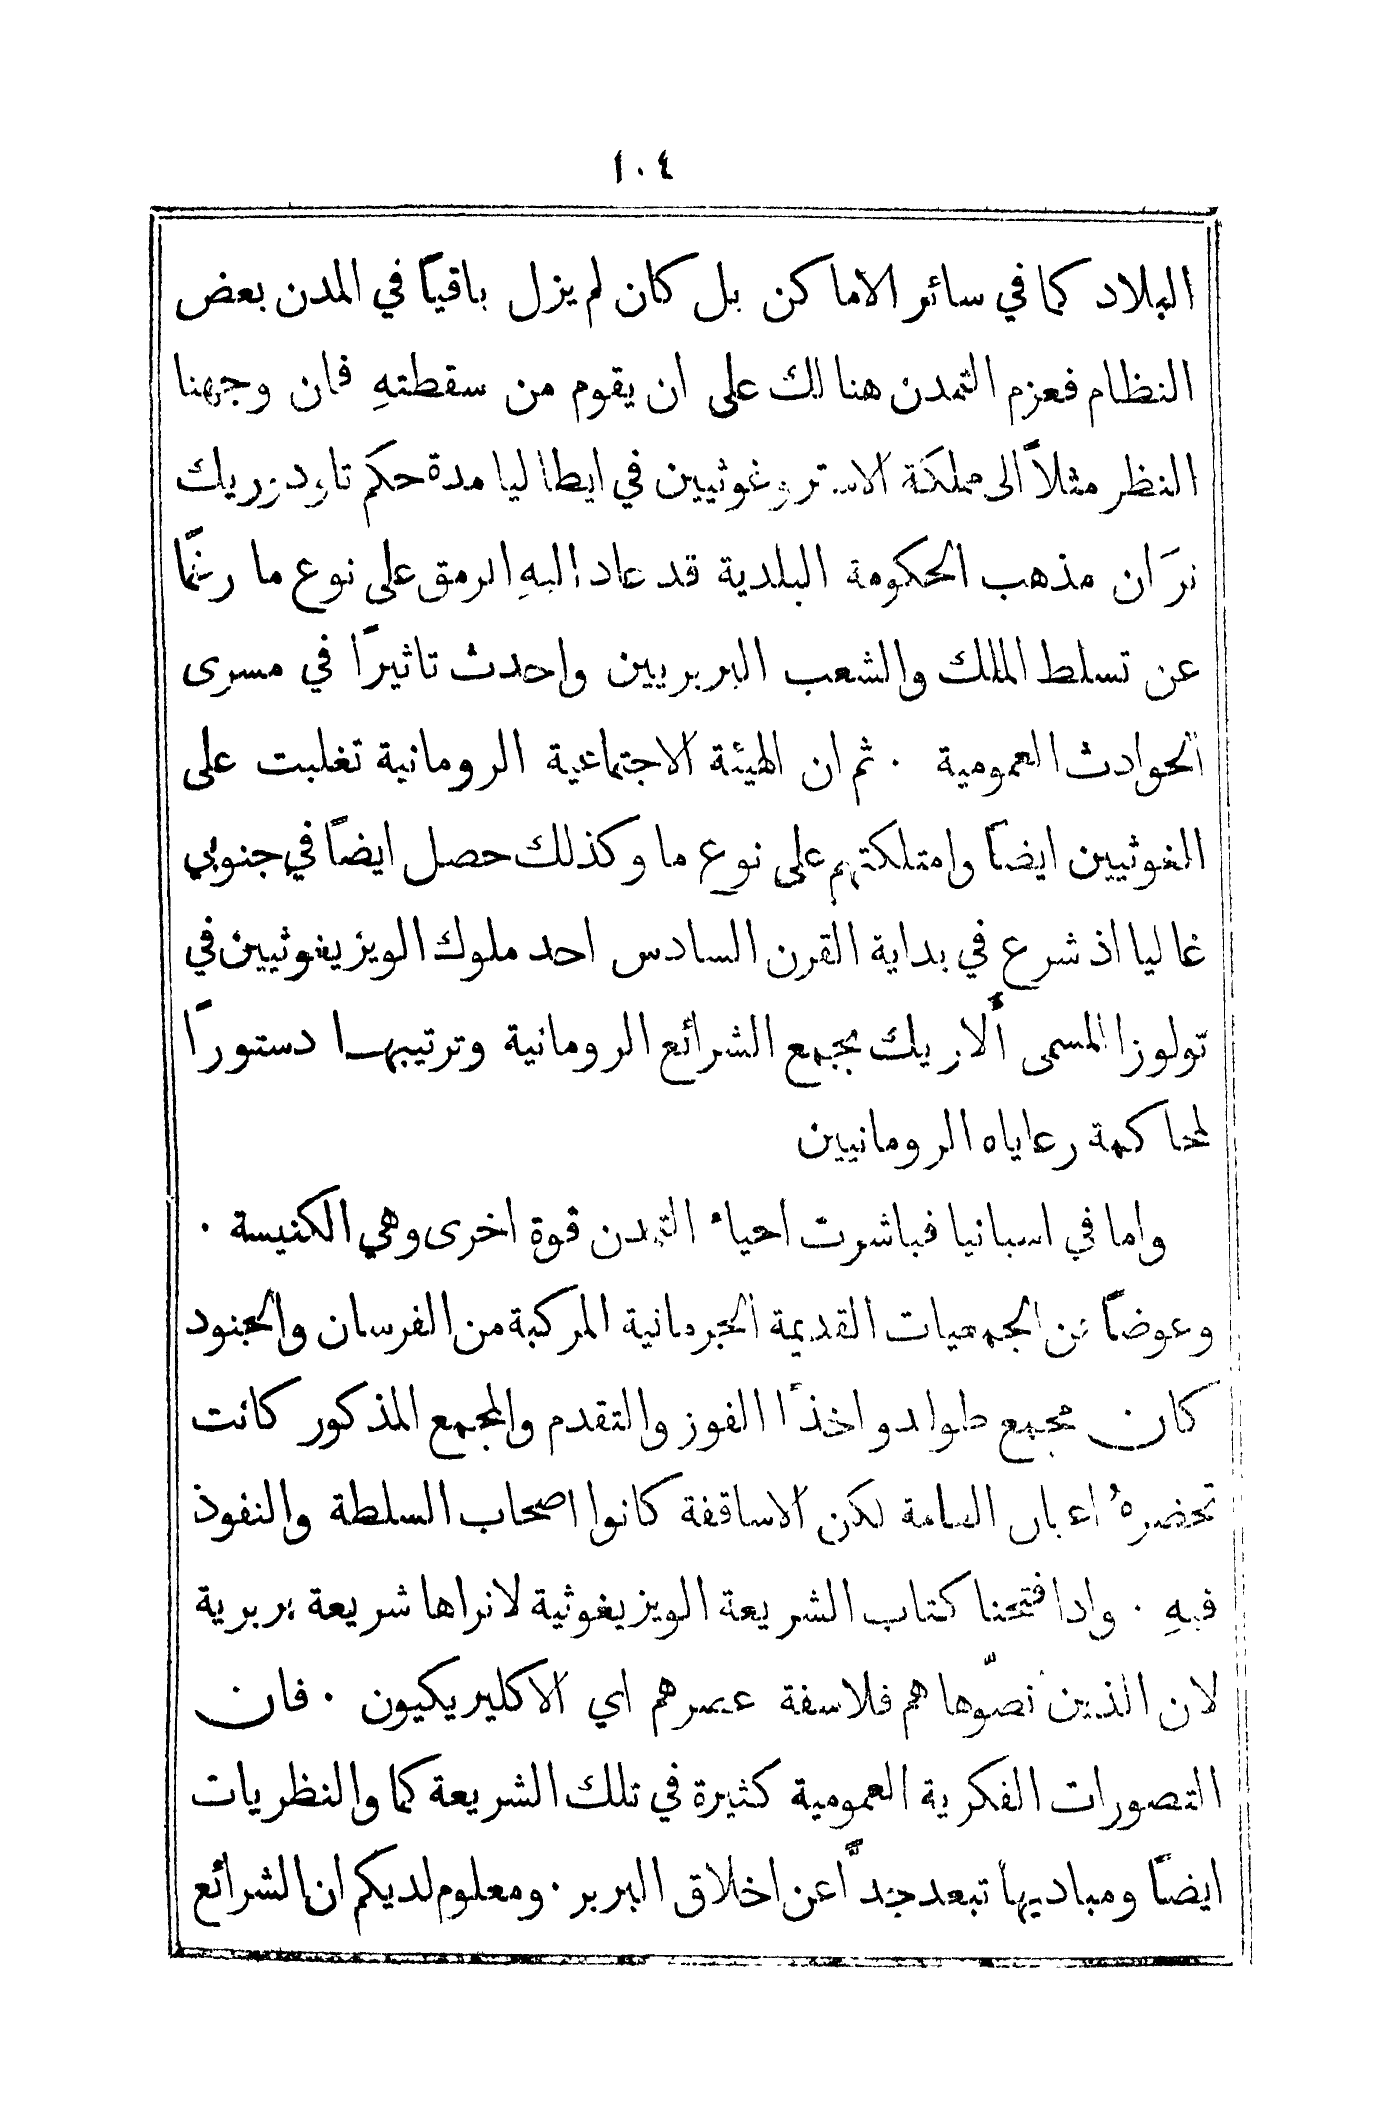 ١٠٤
البلاد كما في سائر الاماكن بل كان لم يزل باقياً في المدن بعض
النظام فعزم التمدن هنالك على ان يقوم من سقطتهِ فان وجهنا
النظر مثلاً الى مملكة الاستروغوثيين في ايطاليا مدة حكم تاودريك
نرَ ان مذهب الحكومة البلدية قد عاد اليهِ الرمق على نوع ما رغمًا
عن تسلط الملك والشعب البربريين واحدث تاثيرًا في مسرى
الحوادث العمومية . ثم ان الهيئة الاجتماعية الرومانية تغلبت على
الغوثيين ايضاً وامتلكتهم على نوع ما وكذلك حصل ايضاً في جنوبي
غاليا اذ شرع في بداية القرن السادس احد ملوك الويزيغوثيين في
تولوزا المسمى ألاريك بجمع الشرائع الرومانية وترتيبها دستورًا
لمحاكمة رعاياه الرومانيين
واما في اسبانيا فباشرت احياء التمدن قوة اخرى وهي الكنيسة .
وعوضاً عن الجمعيات القديمة الجرمانية المركبة من الفرسان والجنود
كان مجمع طوليدو اخذًا الفوز والتقدم والمجمع المذكور كانت
تحضرهُ اعيان العامة لكن الاساقفة كانوا اصحاب السلطة والنفوذ
فيهِ . واذا فتحنا كتاب الشريعة الويزيغوثية لا نراها شريعة بربرية
لان الذين نصّوها هم فلاسفة عصرهم اي الاكليريكيون . فان
التصورات الفكرية العمومية كثيرة في تلك الشريعة كما والنظريات
ايضاً ومباديها تبعد جدًّا عن اخلاق البربر . ومعلوم لديكم ان الشرائع